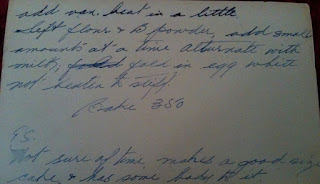 add van. beat in a little
sift flour & B powder, add small
amounts at a time alternate with
milk, fold in egg white
not beaten to stiff.
Bake 350
P.S.
Not sure of time, makes a good size
cake, & has some body to it